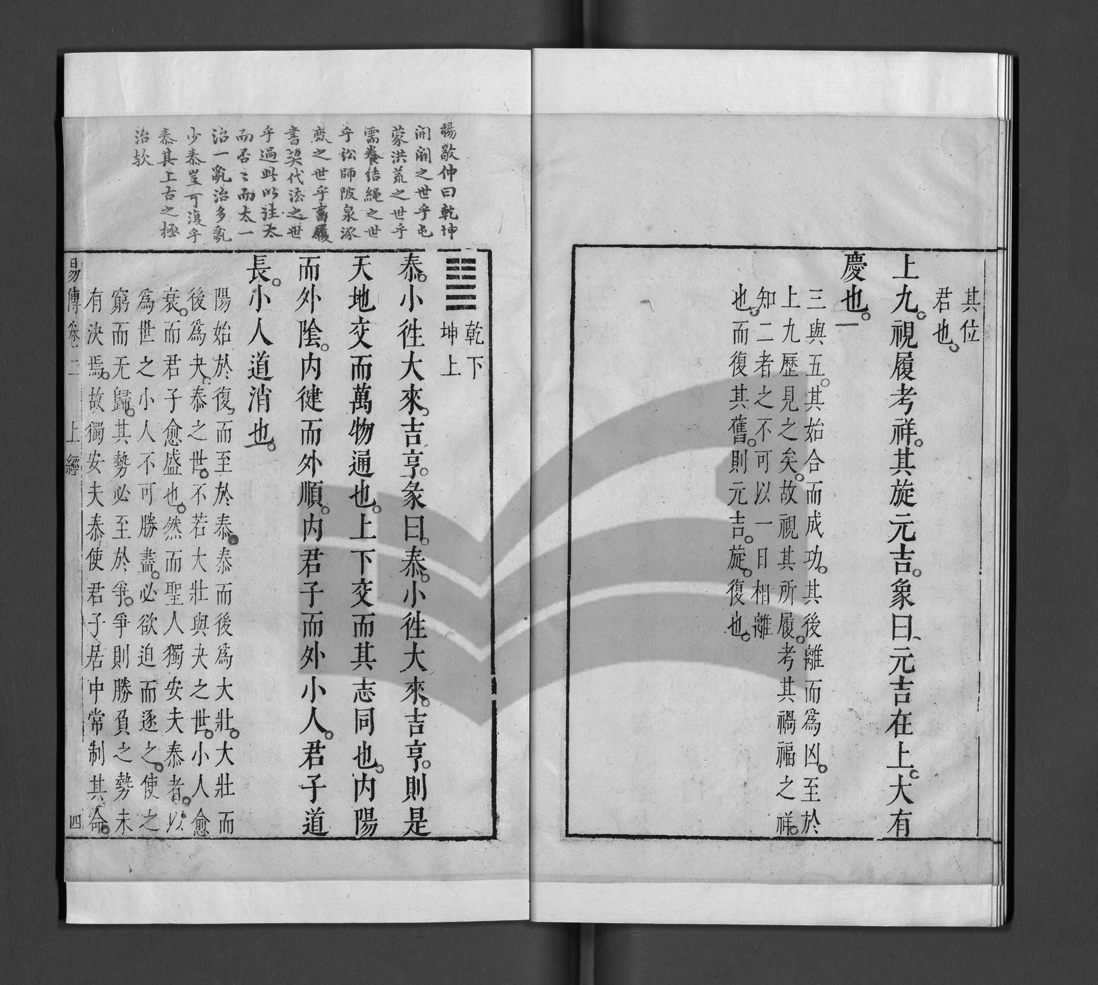 其位
君也。
上九。視履考祥。其旋元吉。象曰、元吉在上。大有
慶也。
三與五。其始合而成功。其後離而爲凶。至於
上九歷見之矣。故視其所履。考其禍福之祥。
知二者之不可以一日相離
也。而復其舊。則元吉。旋。復也。
楊敬仲曰乾坤
開闢之世乎屯
蒙洪荒之世乎
需養結繩之世
乎訟師阪泉涿
鹿之世乎畜履
書契代法之世
乎過此以往太
而否否而太一
治一亂治多亂
少泰豈可復乎
泰其上古之極
治歟
乾下
坤上
泰。小徃大來。吉。亨。彖曰。泰。小徃大來。吉。亨。則是
天地交而萬物通也。上下交而其志同也。内陽
而外陰。内健而外順。内君子而外小人。君子道
長。小人道消也。
陽始於復。而至於泰。泰而後爲大壯。大壯而
後爲夬。泰之世。不若大壯與夬之世。小人愈
衰。而君子愈盛也。然而聖人獨安夫泰者。以
爲世之小人不可勝盡。必欲迫而逐之。使之
窮而无歸。其勢必至於爭。爭則勝負之勢未
有決焉。故獨安夫泰。使君子居中常制其命。
易傳卷二 上經 四